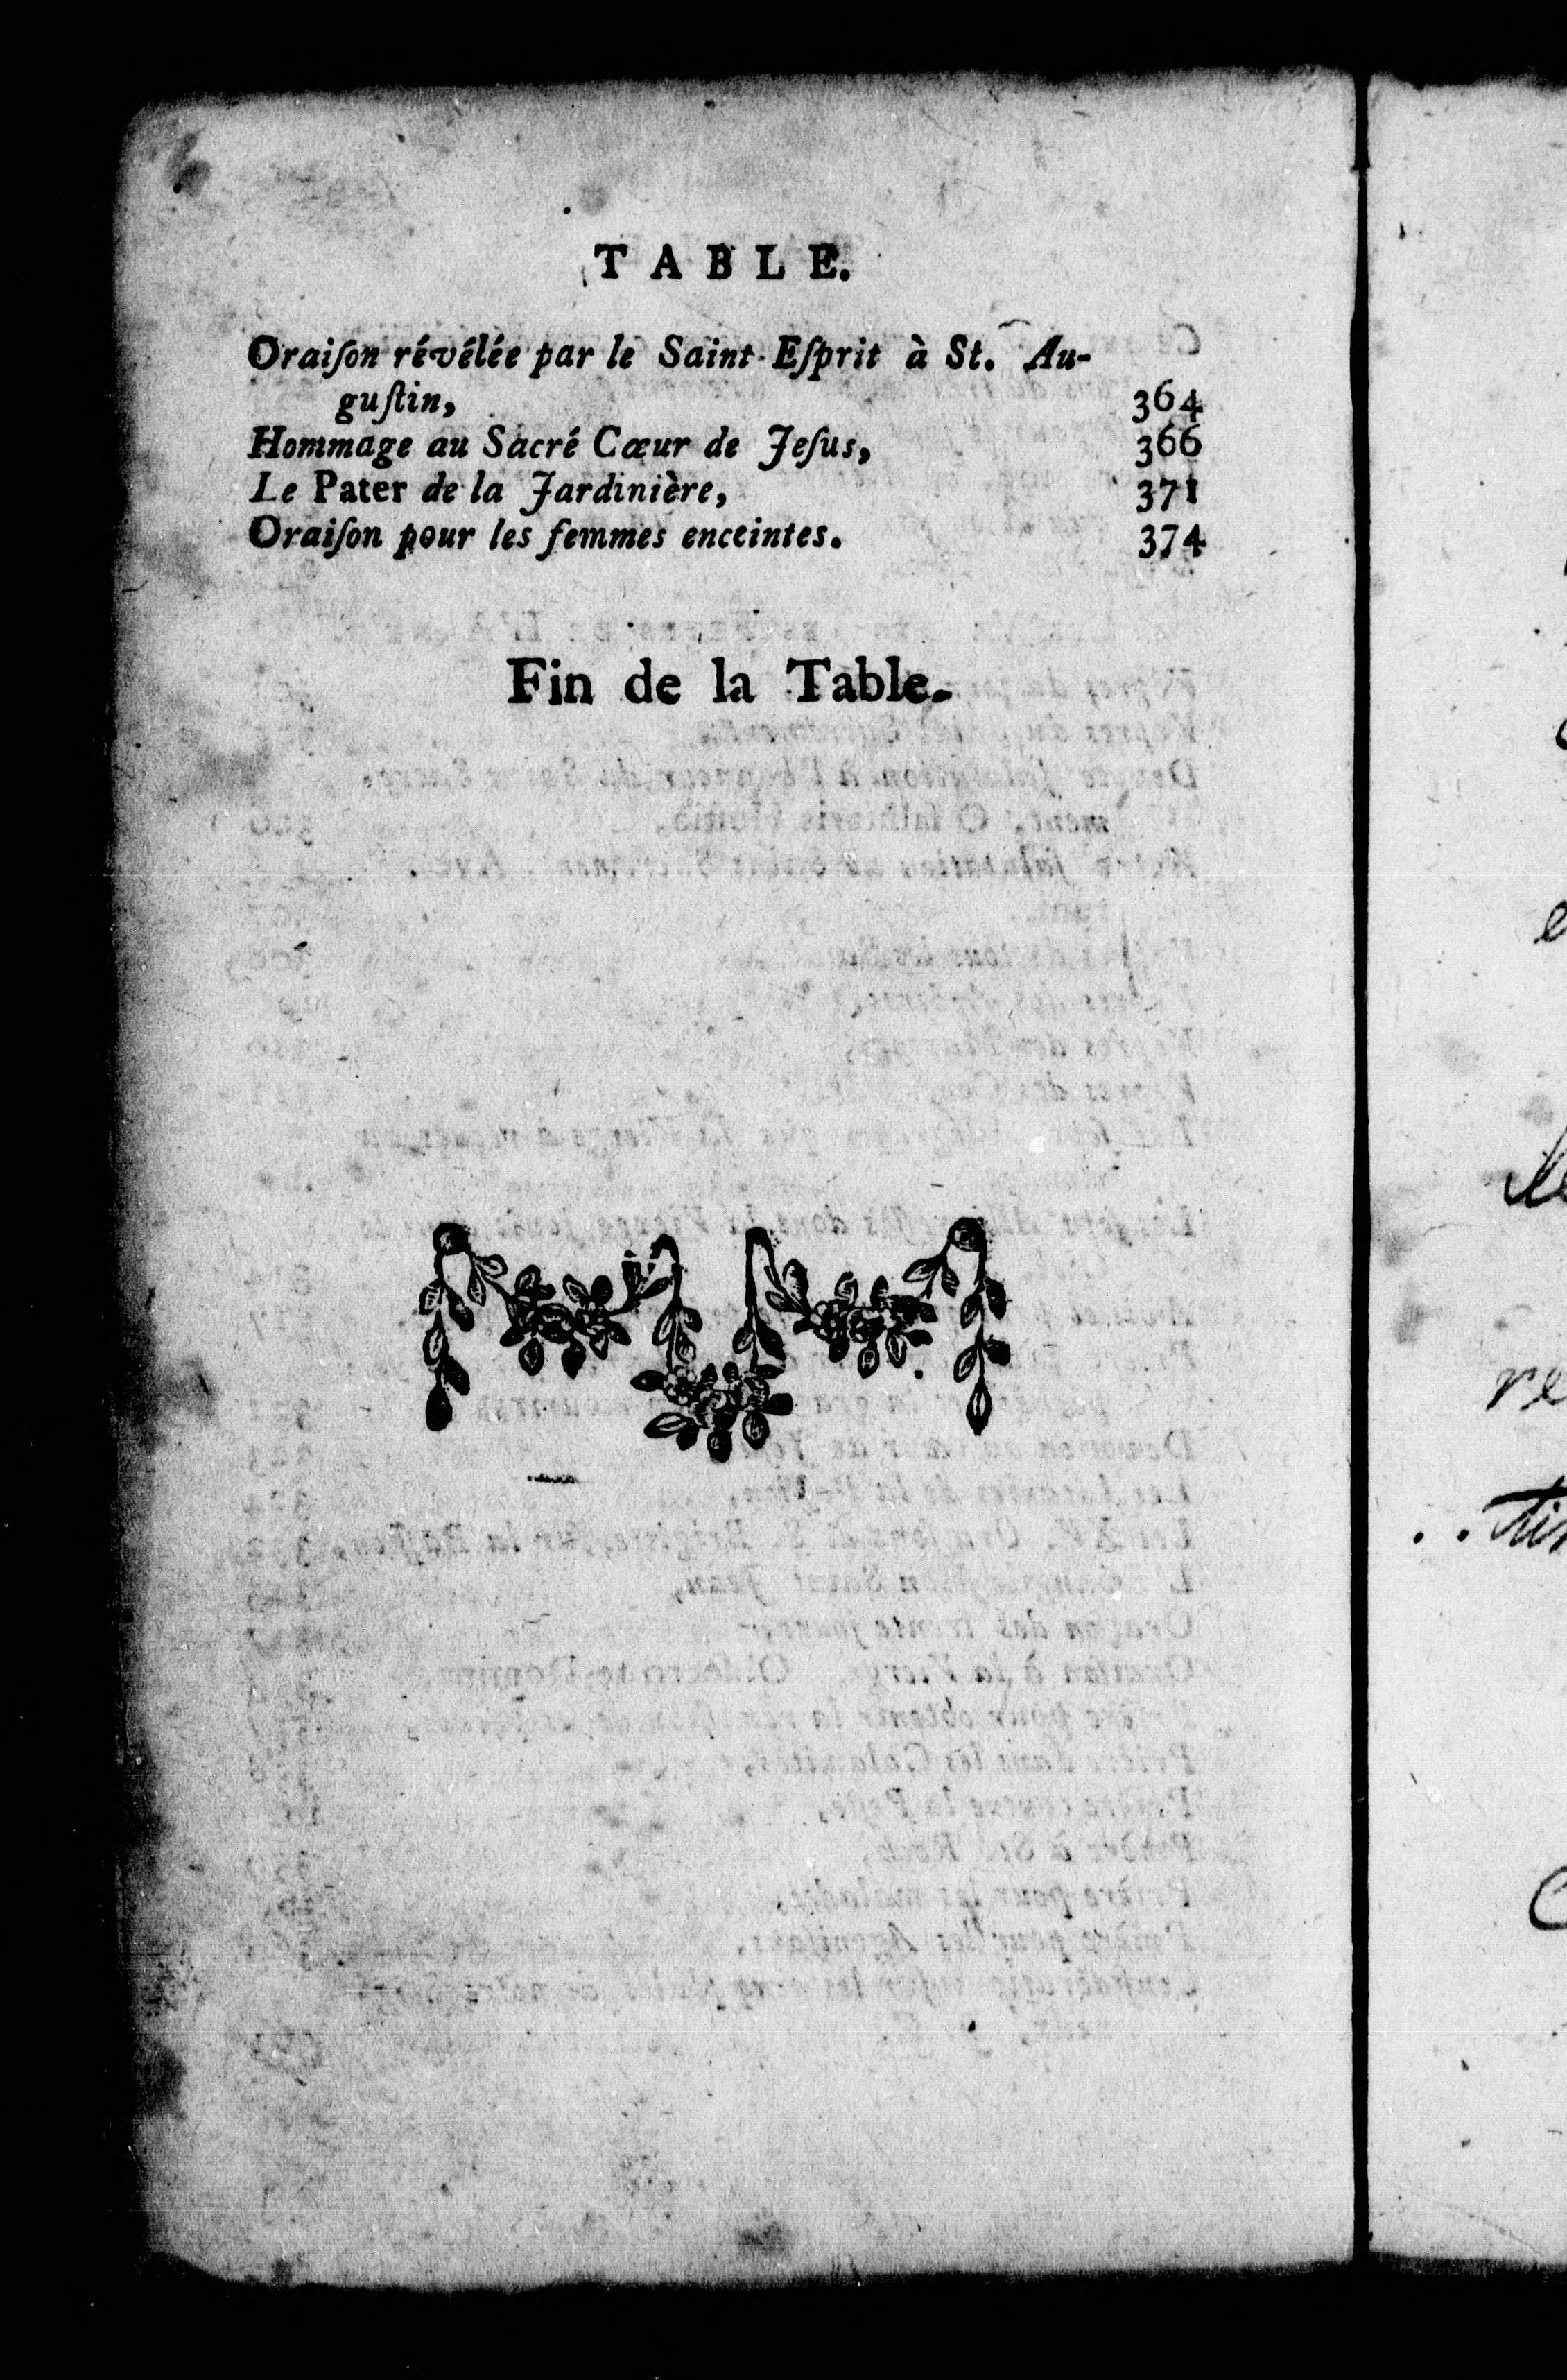 TABLE.
Oraiſon révélée par le Saint-Eſprit à St. Au-
guſtin, 364
Hommage au Sacré Cœur de Jeſus, 366
Le Pater de la Jardinière, 371
Oraiſon pour les femmes enceintes. 374
Fin de la Table.